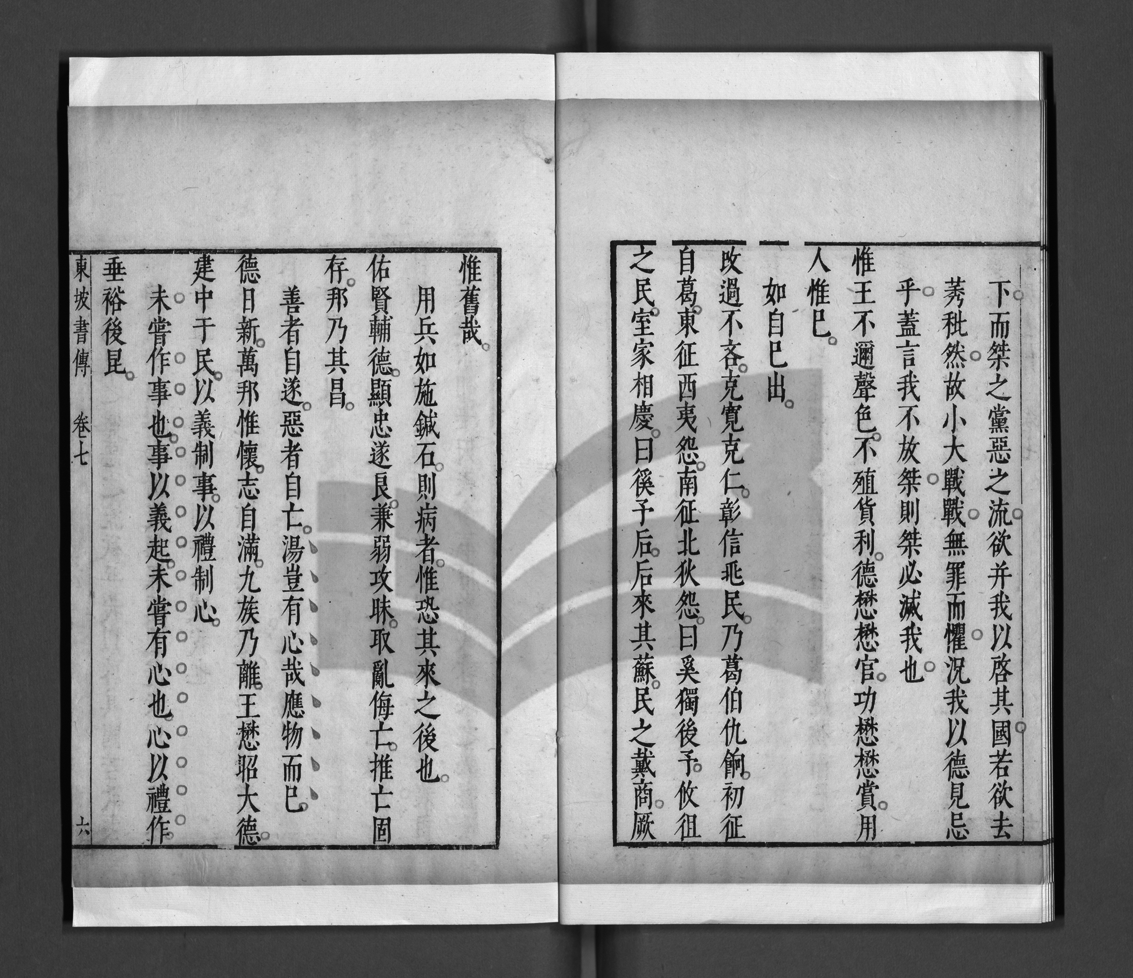 下而桀之黨惡之流欲并我以啓其國若欲去
莠秕然故小大戰戰無罪而懼況我以德見忌
乎蓋言我不放桀則桀必滅我也
惟王不邇聲色不殖貨利德懋懋官功懋懋賞用
人惟已
如自已出
改過不吝克寬克仁彰信兆民乃葛伯仇餉初征
自葛東征西夷怨南征北狄怨曰奚獨後予攸徂
之民室家相慶曰徯予后后來其蘇民之戴商厥
惟舊哉
用兵如施鍼石則病者惟恐其來之後也
佑賢輔德顯忠遂良兼弱攻昧取亂侮亡推亡固
存邦乃其昌
善者自遂惡者自亡湯豈有心哉應物而已
德日新萬邦惟懷志自滿九族乃離王懋昭大德
建中于民以義制事以禮制心
未嘗作事也事以義起未嘗有心也心以禮作
垂裕後昆
東坡書傳 卷七 六